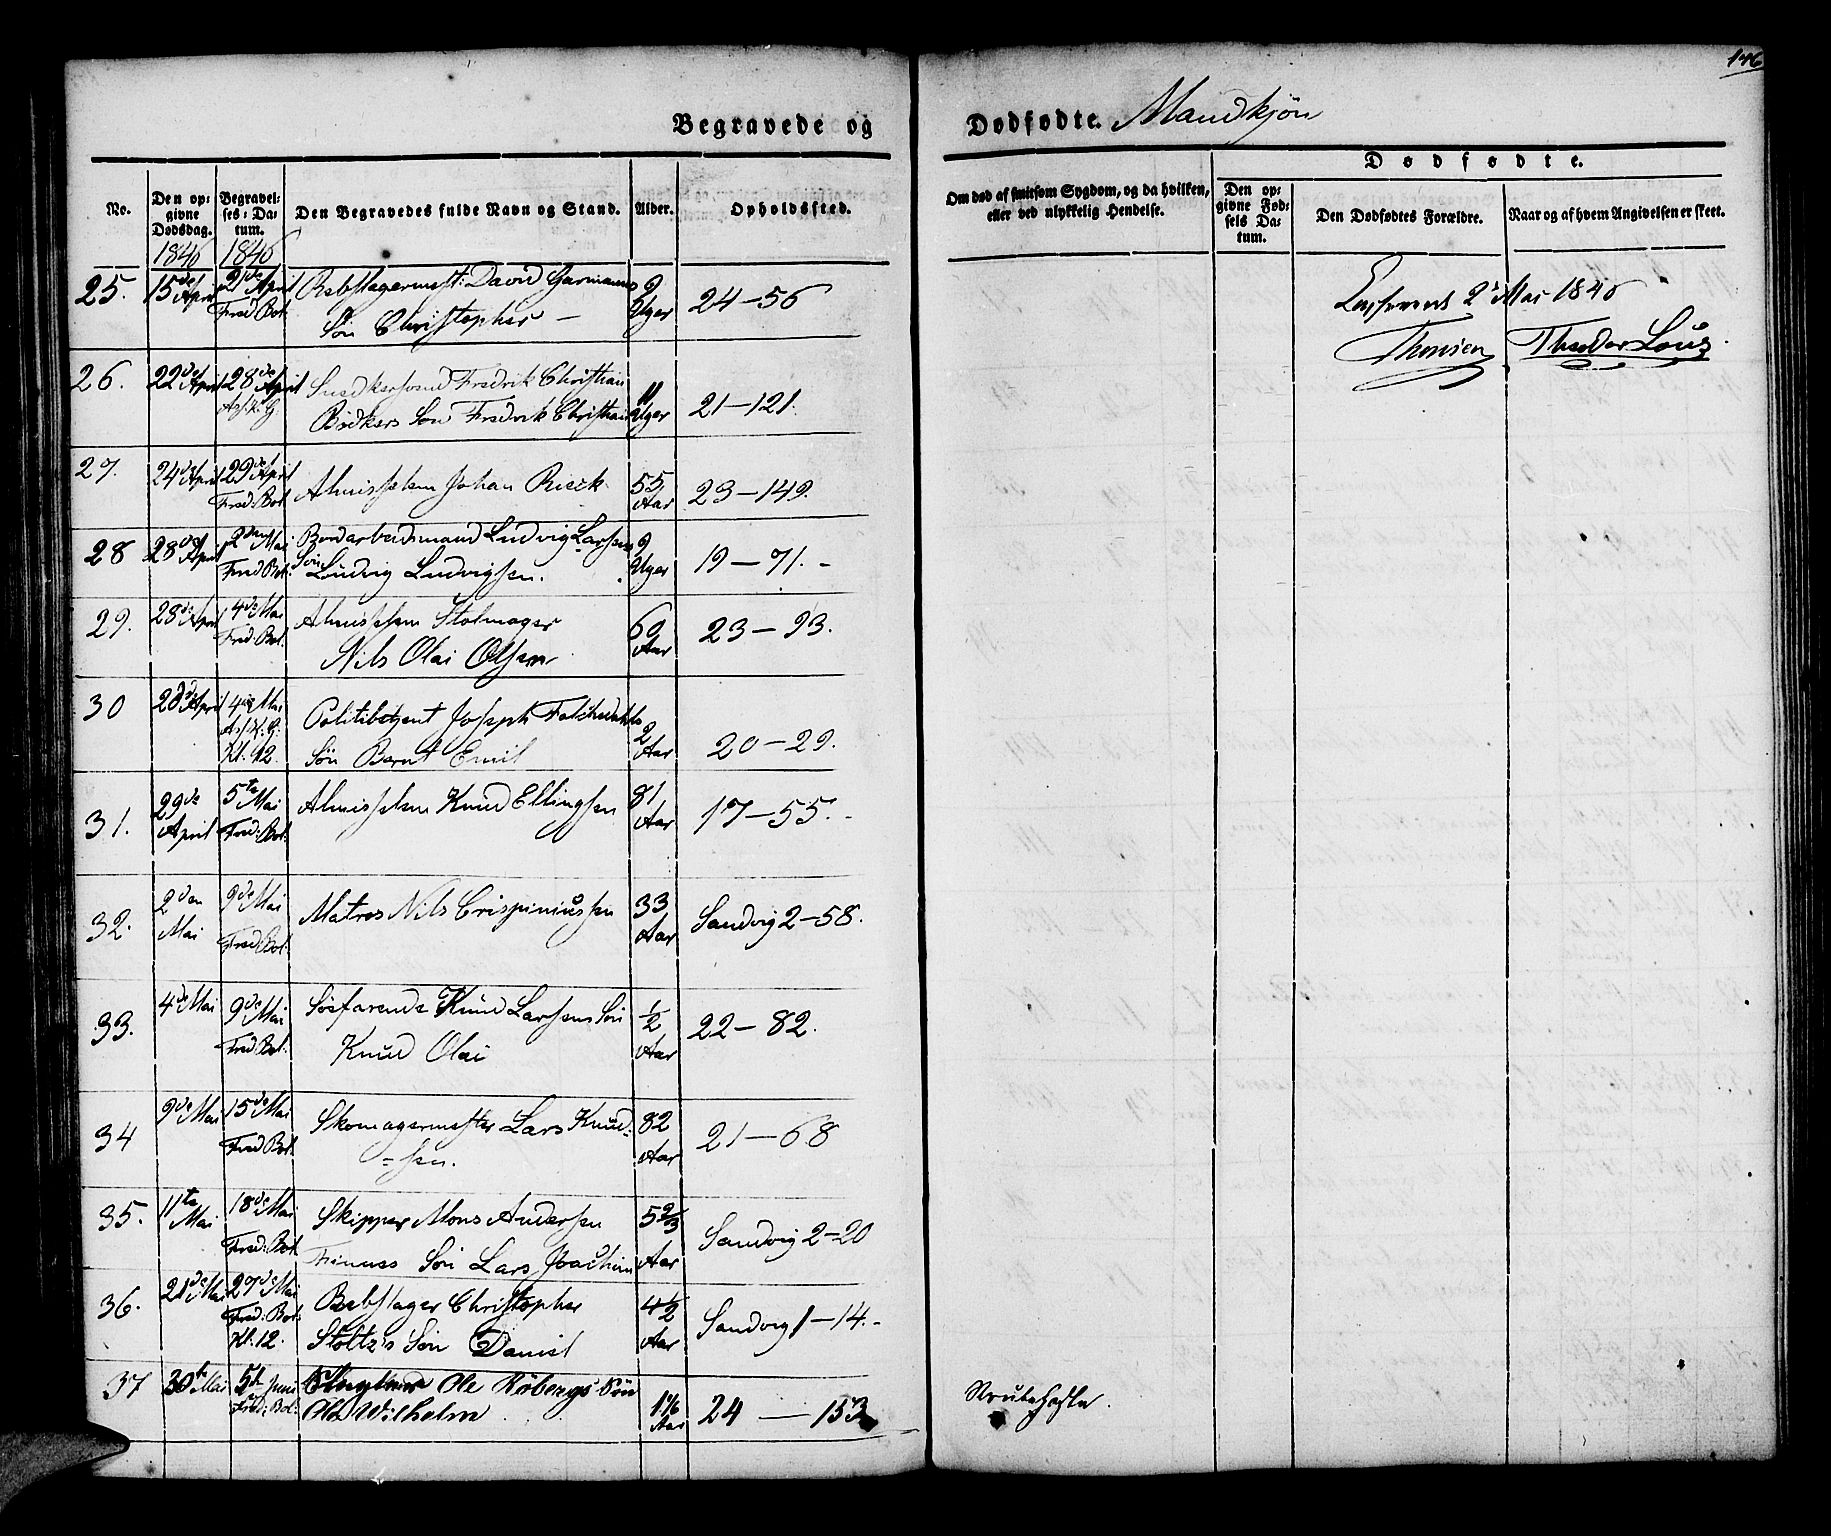 146
Begravede og Dødfødte. Mandkjøn
No.
Den opgivne Dødsdag.
Begravelses-Datum.
Den Begravedes fulde Navn og Stand.
Alder.
Opholdssted.
Om død af smitsom Sygdom, og da hvilken,
eller ved ulykkelig Hendelse.
Dødfødte.
Den opgivne Fødsels Datum.
Den Dødfødtes Forældre.
Naar og af hvem Angivelsen er skeet.
1846 1846
25. 15de April 21de April Rebslagermest: David Garmanns 9 Uger 24-56
Fred Bol. Søn Christopher -
2 Mai 1846
Thomsen Theodor
26. 22de April 28de April Snedkersvend Fredrik Christian 11 Uger 21-121.
As. K. G. Bødkers Søn Fredrik Christian
27. 24de April 29de April Almisselem Johan Rieck. 55 Aar 23-149.
Fred: Bol.
28 28de April 2den Mai Bordarbeidsmand Ludvig Larsens 9 Uger 19-71.-
Fred Bol. Søn Loudvig Ludvigsen.
29. 28de April 4de Mai Almisselem Stolmager 60 Aar 23-93.
Fred: Bol. Nils Olai Olsen
30 28de April 4de Mai Politibetjent Joseph 2 Aar 20-29.
As. K. G: Kl. 12. Søn Bernt Emil
31. 29de April 5te Mai Almisselem Knud Ellingsen 81 Aar 17-55.-
Fred: Bol.
32. 2den Mai 9de Mai Matros Nils Crispiniussen 33 Aar Sandvig 2-58.
Fred: Bol.
33. 4de Mai 9de Mai Søefarende Knud Larsens Søn ½ Aar 22-82.
Fred: Bol. Knud Olai
34 9de Mai 15de Mai Skomagermester Lars Knud= 82 Aar 21-68
Fred Bol. =sen.
35. 11te Mai 18de Mai Skipper Mons Andersen 5 2/3 Aar Sandvig 2-20
Fred: Bol. Søn Lars Joachim
36. 21de Mai 27de Mai Rebslager Christopher 4½ Aar Sandvig 1-14.-
Fred: Bol: Kl. 12. Stoltz's Søn Daniel
37 30te Mai 5te Juni Ole Søn 1 1/6 Aar 24-153
Fred: Bol: Ole Wilhelm
Strubehoste.